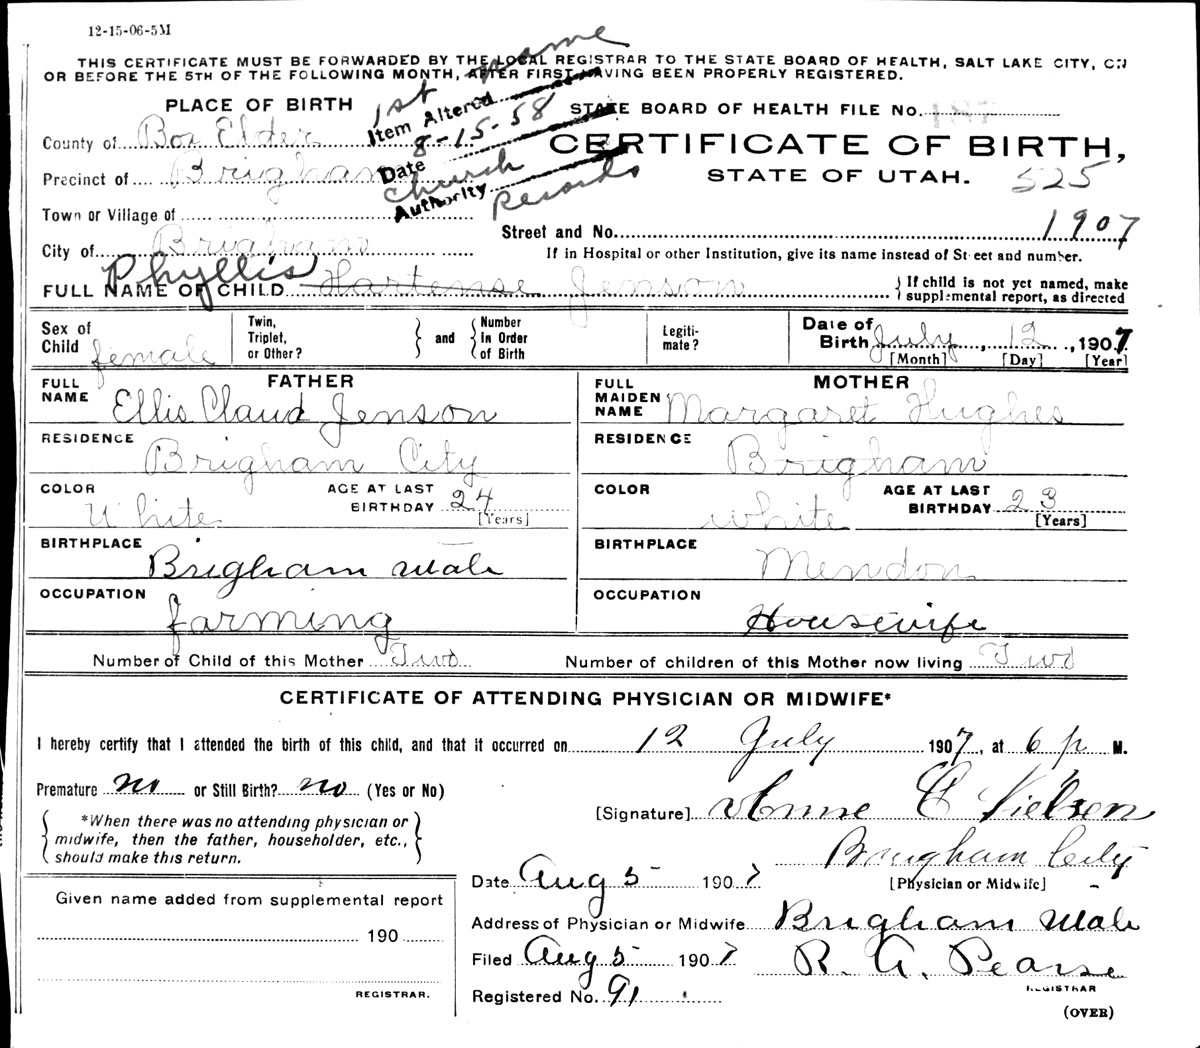 12-15-06-5M
THIS CERTIFICATE MUST BE FORWARDED BY THE LOCAL REGISTRAR TO THE STATE BOARD OF HEALTH, SALT LAKE CITY, ON
OR BEFORE THE 5TH OF THE FOLLOWING MONTH, AFTER FIRST HAVING BEEN PROPERLY REGISTERED.
1st name
Item Altered
8-15-58
Date
Church Records
Authority
PLACE OF BIRTH
STATE BOARD OF HEALTH FILE No.
County of Box Elder
CERTIFICATE OF BIRTH,
Precinct of Brigham
STATE OF UTAH. 525
Town or Village of
Street and No. 1907
City of Brigham
If in Hospital or other Institution, give its name instead of Street and number.
Phyllis
FULL NAME OF CHILD Hortense Jenson
If child is not yet named, make
supplemental report, as directed
Sex of Child female
Twin, Triplet, or Other?
and
Number in Order of Birth
Legitimate?
Date of Birth July 12, 1907
[Month] [Day] [Year]
FATHER
FULL NAME Ellis Claud Jenson
MOTHER
FULL MAIDEN NAME Margaret Hughes
RESIDENCE Brigham City
RESIDENCE Brigham
COLOR White
AGE AT LAST BIRTHDAY 24 [Years]
COLOR white
AGE AT LAST BIRTHDAY 23 [Years]
BIRTHPLACE Brigham Utah
BIRTHPLACE Mendon
OCCUPATION farming
OCCUPATION Housewife
Number of Child of this Mother Two
Number of children of this Mother now living Two
CERTIFICATE OF ATTENDING PHYSICIAN OR MIDWIFE*
I hereby certify that I attended the birth of this child, and that it occurred on 12 July 1907, at 6 p M.
Premature no or Still Birth? no (Yes or No)
[Signature] Anne C Nielsen
*When there was no attending physician or
midwife, then the father, householder, etc.,
should make this return.
Brigham City
[Physician or Midwife]
Date Aug 5 1907
Given name added from supplemental report
190
REGISTRAR.
Address of Physician or Midwife Brigham Utah
Filed Aug 5 1907 R. A. Pearse
REGISTRAR
Registered No. 91
(OVER)